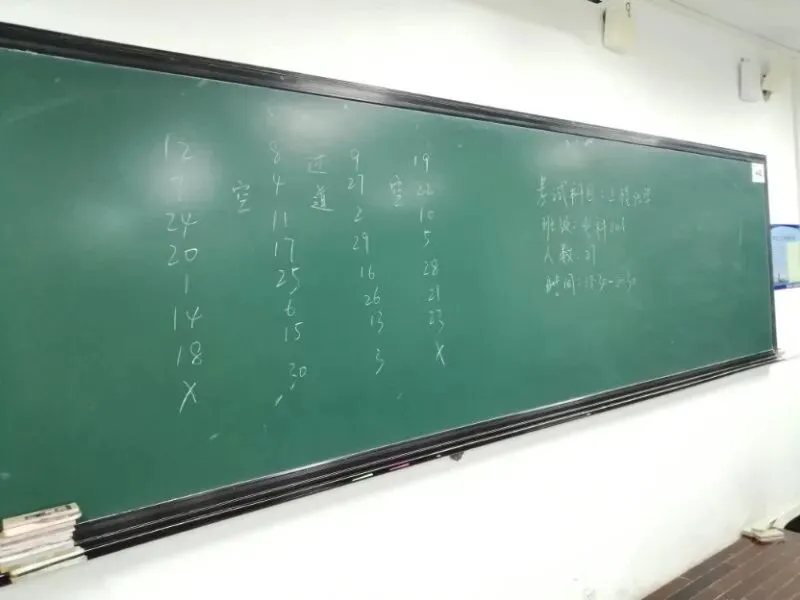 12 8 过 9 19
7 空 4 道 27 空 22
24 11 2 10
20 17 29 5
1 25 16 28
14 6 26 21
18 15 13 23
X 30 3 X
考试科目:工程化学
班级:
人数:
时间: